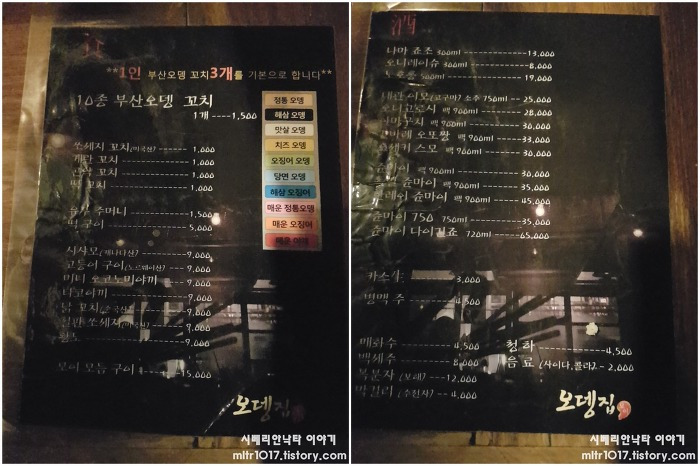 **1인 부산오뎅 꼬치3개를 기본으로 합니다**
10종 부산오뎅 꼬치
1개 ----1,500
정통 오뎅
해삼 오뎅
맛살 오뎅
치즈 오뎅
오징어 오뎅
당면 오뎅
해삼 오징어
매운 정통오뎅
매운 오징어
쏘세지 꼬치(미국산)------ 1,000
계란 꼬치 ------------- 1,000
꼬치 ------------- 1,000
떡 꼬치 ------------- 1,000
주머니 ----------- 1,500
떡 구이 ------------- 5,000
시샤모 (캐나다산)-------- 9,000
고등어 구이(노르웨이산) --- 9,000
미니 오코노미야끼 ------- 9,000
타코야끼 ------------ 9,000
닭 꼬치 -------- 9,000
쏘세지(미국산) ------ 9,000
9,000
모듬 구이 -------15,000
오뎅집
시베리안낙타 이야기
mltr1017.tistory.com
酒
나마 죠조 300ml --------------13,000
오니레이슈 300ml ------------- 8,000
500ml --------------- 19,000
(고구마) 소주 750ml -- 25,000
팩 900ml -------- 28,000
팩 900ml --------- 30,000
오또꼬 팩 900ml ------ 33,000
스모 팩 900ml -------- 30,000
팩 900ml --------- 30,000
준마이 팩 900ml ------ 35,000
준마이 팩 900ml ---- 45,000
준마이 750 750ml ------- 35,000
준마이 다이긴죠 720ml -----65,000
카스 ------------ 3,000
병맥주 ---------- 4,500
매화수 ----------- 4,500
백세주 ----------- 8,000
복분자 (보해)------ 12,000
막걸리 (수헌자) --- 4,000
청하 --------------4,500
음료 (사이다,콜라)- 2,000
오뎅집
시베리안낙타 이야기
mltr1017.tistory.com